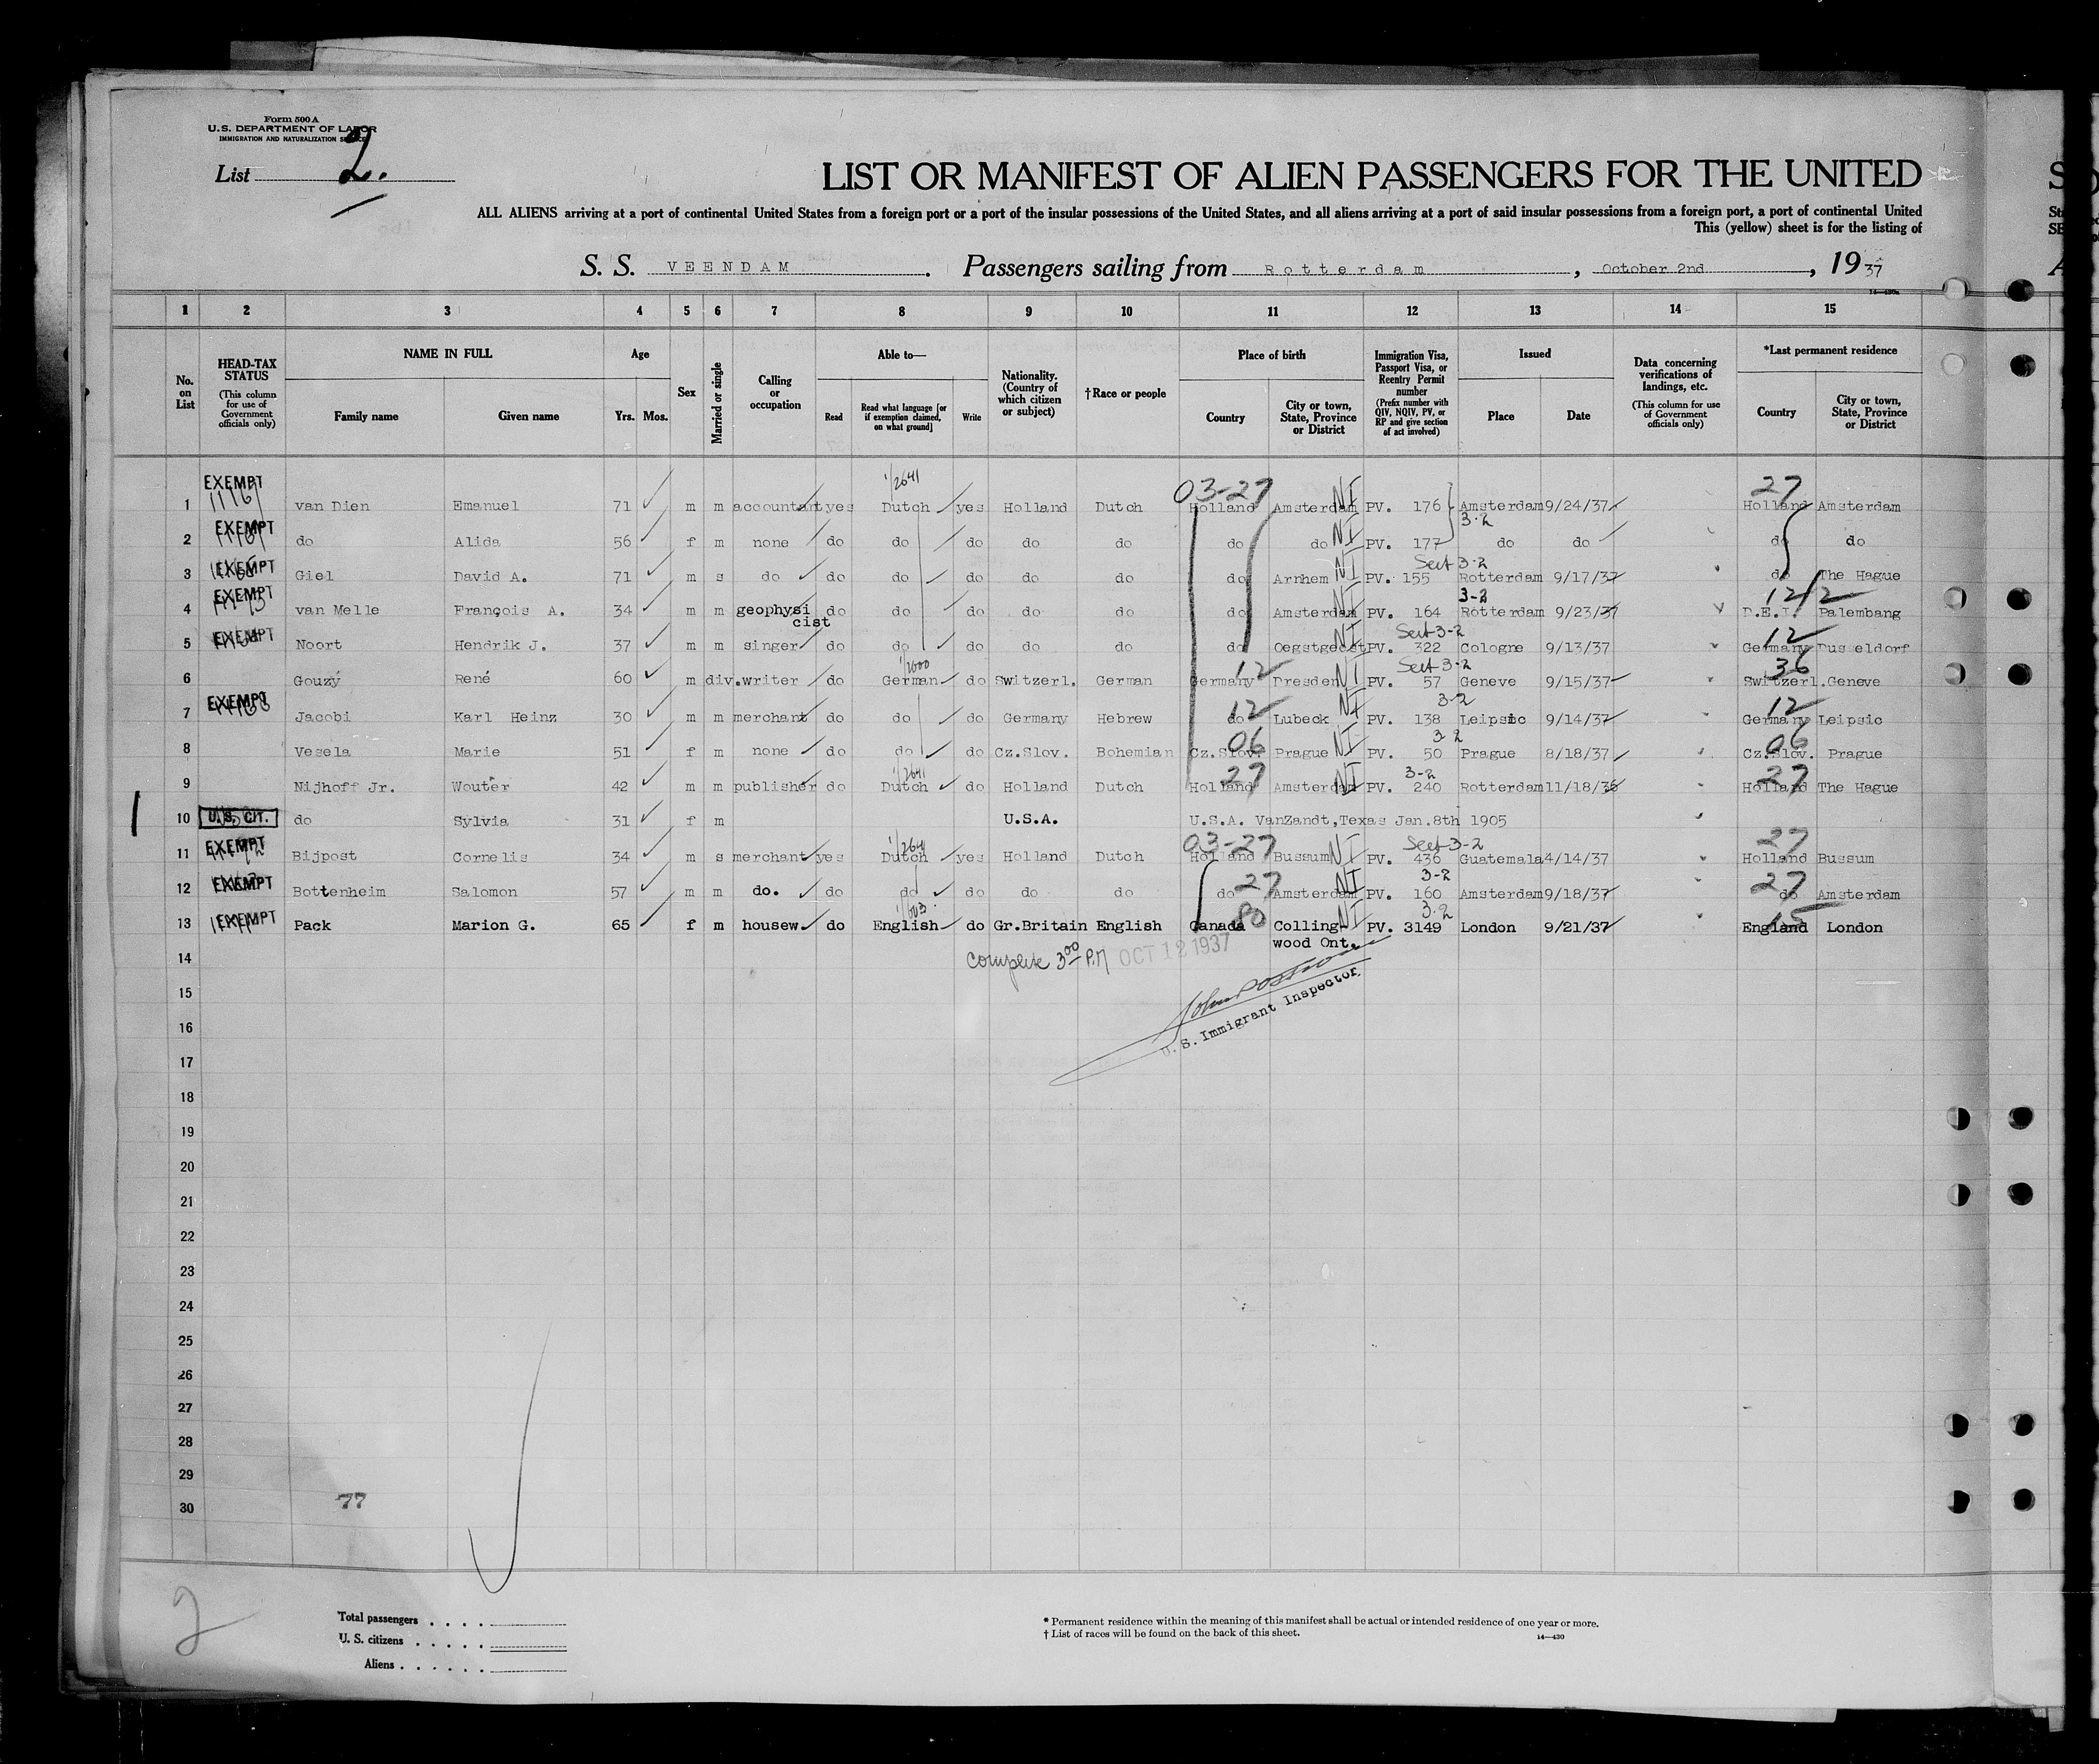 Form 500 A
U.S. DEPARTMENT OF LABOR
IMMIGRATION AND NATURALIZATION
List 2.
LIST OR MANIFEST OF ALIEN PASSENGERS FOR THE UNITED
ALL ALIENS arriving at a port of continental United States from a foreign port or a port of the insular possessions of the United States, and all aliens arriving at a port of said insular possessions from a foreign port, a port of continental United
This (yellow) sheet is for the listing of
S. S. VEENDAM . Passengers sailing from Rotterdam , October 2nd , 19 37
1 2 3 4 5 6 7 8 9 10 11 12 13 14 15
No. on List
HEAD-TAX STATUS (This column for use of Government officials only)
NAME IN FULL
Family name Given name
Age
Yrs. Mos.
Sex
Married or single
Calling or occupation
Able to—
Read
Read what language [or if exemption claimed, on what ground]
Write
Nationality. (Country of which citizen or subject)
†Race or people
Place of birth
Country
City or town, State, Province or District
Immigration Visa, Passport Visa, or Reentry Permit number (Prefix number with QIV, NQIV, PV, or RP and give section of act involved)
Issued
Place Date
Data concerning verifications of landings, etc. (This column for use of Government officials only)
*Last permanent residence
Country
City or town, State, Province or District
1/2641 03-27 27
1 EXEMPT van Dien Emanuel 71 m m accountant yes Dutch yes Holland Dutch Holland Amsterdam NI PV. 176 Amsterdam 9/24/37 Holland Amsterdam
3-2
2 EXEMPT do Alida 56 f m none do do do do do do do NI PV. 177 do do do do
Sect 3-2
3 EXEMPT Giel David A. 71 m s do do do do do do do Arnhem NI PV. 155 Rotterdam 9/17/37 do The Hague
3-2 12/2
4 EXEMPT van Melle François A. 34 m m geophysicist do do do do do do Amsterdam NI PV. 164 Rotterdam 9/23/37 D.E.I. Palembang
Sect 3-2 12
5 EXEMPT Noort Hendrik J. 37 m m singer do do do do do do Oegstgeest NI PV. 322 Cologne 9/13/37 Germany Dusseldorf
1/2000 12 Sect 3-2 36
6 Gouzy René 60 m div. writer do German do Switzerl. German Germany Dresden NI PV. 57 Geneve 9/15/37 Switzerl. Geneve
12 3-2 12
7 EXEMPT Jacobi Karl Heinz 30 m m merchant do do do Germany Hebrew do Lubeck NI PV. 138 Leipsic 9/14/37 Germany Leipsic
06 3-2 06
8 Vesela Marie 51 f m none do do do Cz.Slov. Bohemian Cz.Slov. Prague NI PV. 50 Prague 8/18/37 Cz.Slov. Prague
1/2641 27 3-2 27
9 Nijhoff Jr. Wouter 42 m m publisher do Dutch do Holland Dutch Holland Amsterdam NI PV. 240 Rotterdam 11/18/36 Holland The Hague
10 U.S. CIT. do Sylvia 31 f m U.S.A. U.S.A. VanZandt,Texas Jan.8th 1905
1/264 03-27 Sect 3-2 27
11 EXEMPT Bijpost Cornelis 34 m s merchant yes Dutch yes Holland Dutch Holland Bussum NI PV. 436 Guatemala 4/14/37 Holland Bussum
27 3-2 27
12 EXEMPT Bottenheim Salomon 57 m m do. do do do do do do Amsterdam NI PV. 160 Amsterdam 9/18/37 do Amsterdam
1/603 80 3-2 15
13 EXEMPT Pack Marion G. 65 f m housew. do English do Gr.Britain English Canada Collingwood Ont. NI PV. 3149 London 9/21/37 England London
14 Complete 3⁰⁰ P.M OCT 12 1937
15
16 U. S. Immigrant Inspector.
17
18
19
20
21
22
23
24
25
26
27
28
29
30 77
2
Total passengers
U. S. citizens
Aliens
* Permanent residence within the meaning of this manifest shall be actual or intended residence of one year or more.
† List of races will be found on the back of this sheet.
14—430